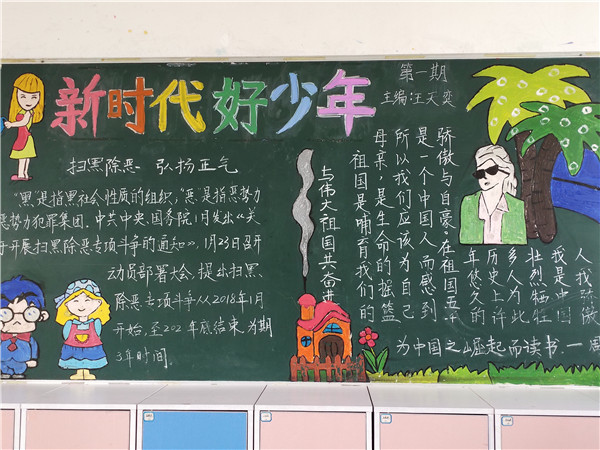 新时代好少年
第一期
主编:王天奕
扫黑除恶 弘扬正气
"黑"是指黑社会性质的组织,"恶"是指恶势力
恶势力犯罪集团.中共中央、国务院,1月发出《关
于开展扫黑除恶专项斗争的通知》,1月23日召开
动员部署大会,提出扫黑、
除恶专项斗争从2018年1月
开始,至202年底结束,为期
3年时间。
与伟大祖国共奋进
祖国是哺育我们的
母亲,是生命的摇篮
所以我们应该为自己
是一个中国人而感到
骄傲与自豪。在祖国五千
年悠久的
历史上许
多人为此
壮烈牺牲
我是中国
人我骄傲
为中国之崛起而读书.—周